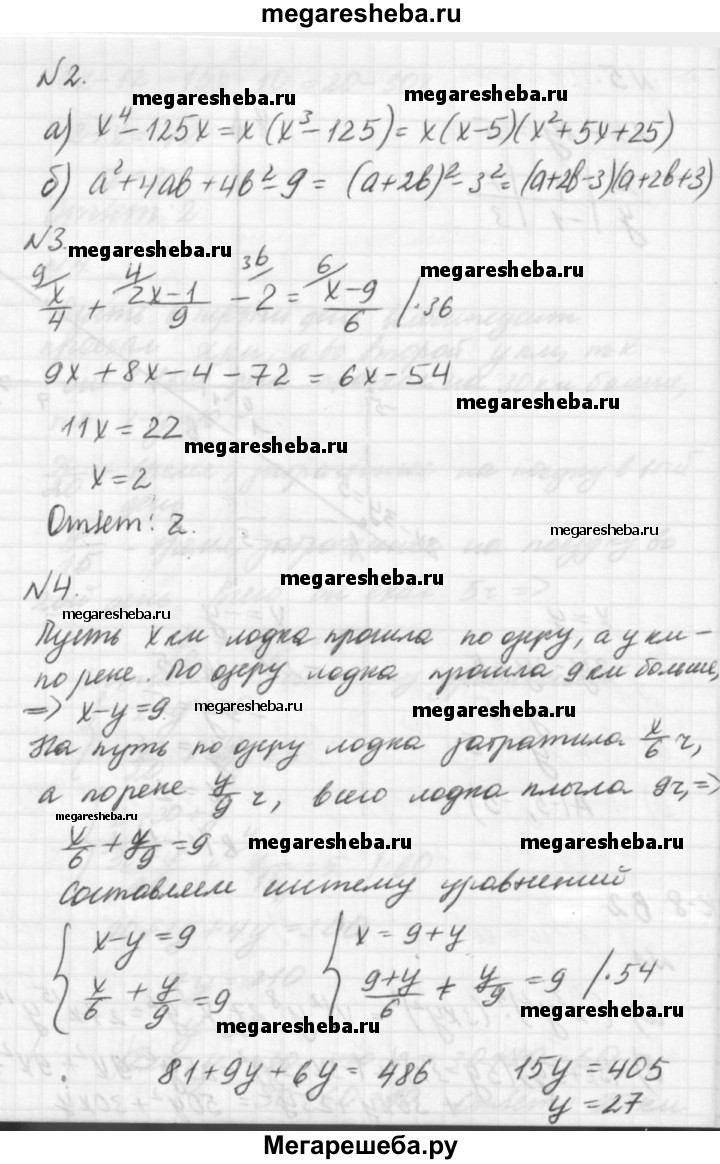 megaresheba.ru
№2.
megaresheba.ru megaresheba.ru
а) x⁴-125x = x(x³-125) = x(x-5)(x²+5x+25)
б) a²+4ab+4b²-9 = (a+2b)²-3² = (a+2b-3)(a+2b+3)
№3.
megaresheba.ru
9/ 4/ 36/ 6/ megaresheba.ru
x/4 + (2x-1)/9 - 2 = (x-9)/6 |·36
9x+8x-4-72 = 6x-54
megaresheba.ru
11x = 22
megaresheba.ru
x=2
Ответ: 2.
megaresheba.ru
№4. megaresheba.ru
megaresheba.ru
Пусть x км лодка прошла по озеру, а y км -
по реке. По озеру лодка прошла 9 км больше,
=> x-y=9. megaresheba.ru megaresheba.ru
На путь по озеру лодка затратила x/6 ч,
а по реке y/9 ч, всего лодка плыла 9ч, =>
megaresheba.ru
x/6 + y/9 = 9 megaresheba.ru megaresheba.ru
Составляем систему уравнений
{ x-y=9 { x = 9+y
x/6 + y/9 = 9 (9+y)/6 + y/9 = 9 |·54
megaresheba.ru megaresheba.ru
81+9y+6y = 486 15y = 405
y = 27
Мегарешеба.ру